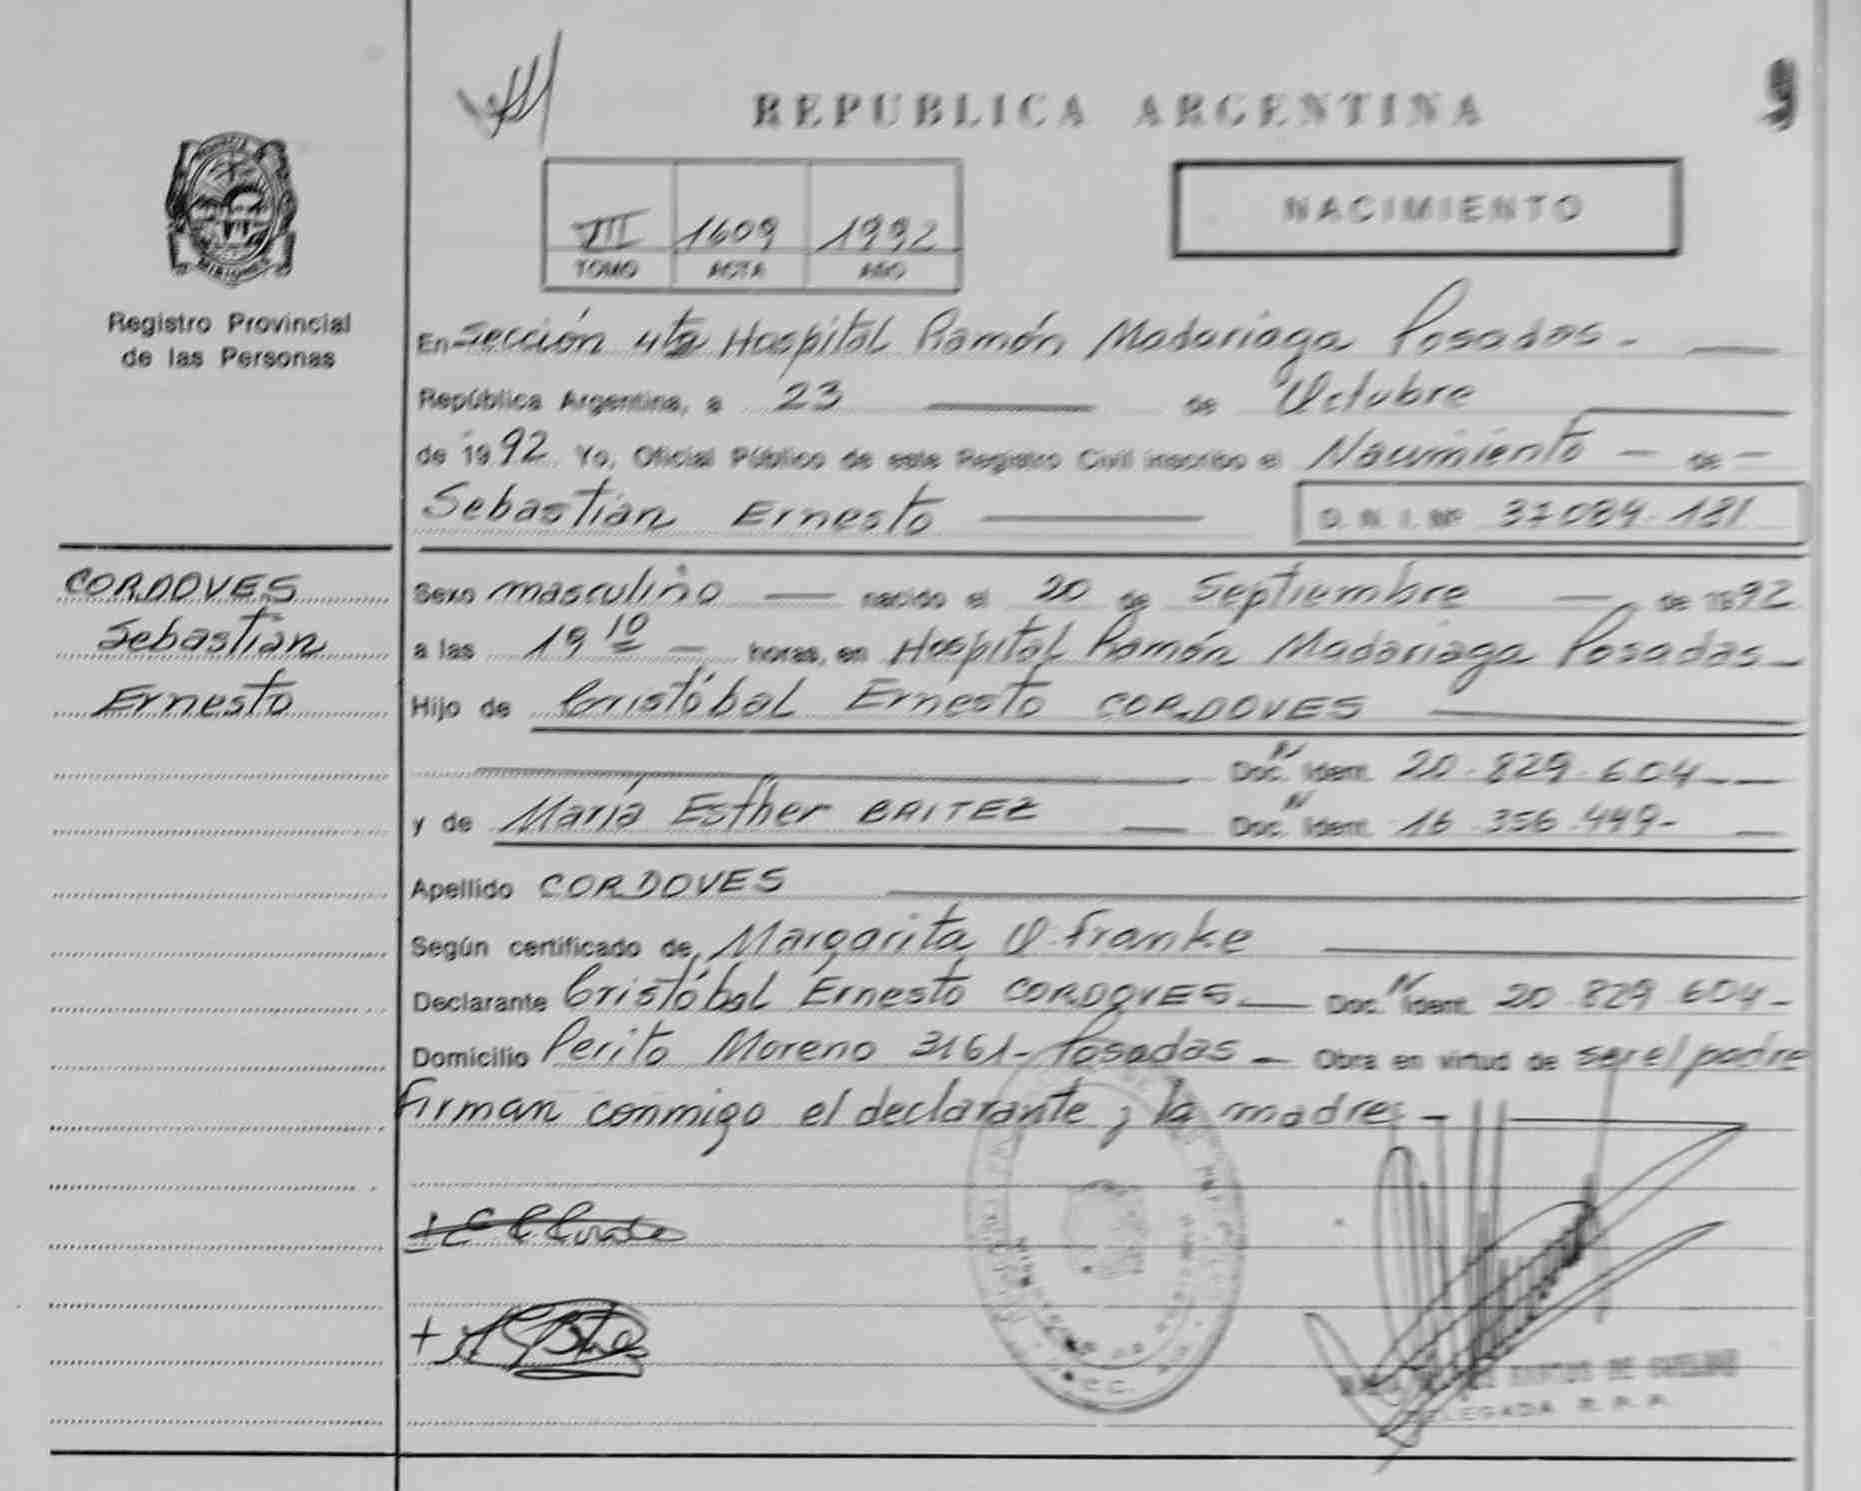 REPUBLICA ARGENTINA
9
MISIONES
Registro Provincial
de las Personas
III 1609 1992
TOMO ACTA AÑO
NACIMIENTO
En Sección 4ta Hospital Ramón Madariaga Posadas.
República Argentina, a 23 de Octubre
de 1992. Yo, Oficial Público de este Registro Civil inscribo el Nacimiento de
Sebastián Ernesto D. N. I. Nº 37.084.181
CORDOVES
Sebastián
Ernesto
Sexo masculino nacido el 20 de Septiembre de 1992
a las 19 10 horas, en Hospital Ramón Madariaga Posadas
Hijo de Cristóbal Ernesto CORDOVES
Doc. Ident. 20.829.604
y de María Esther BAITEZ Doc. Ident. 16.356.449
Apellido CORDOVES
Según certificado de Margarita O. Franke
Declarante Cristóbal Ernesto CORDOVES Doc. Ident. 20.829.604
Domicilio Perito Moreno 3161 - Posadas Obra en virtud de ser el padre
firman conmigo el declarante y la madre.
DELEGADA R. P. P.